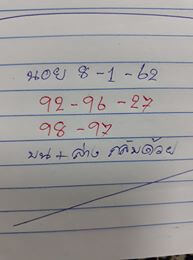 นอย 8-1-62
92-96-27
98-97
บน + ล่าง กลับด้วย